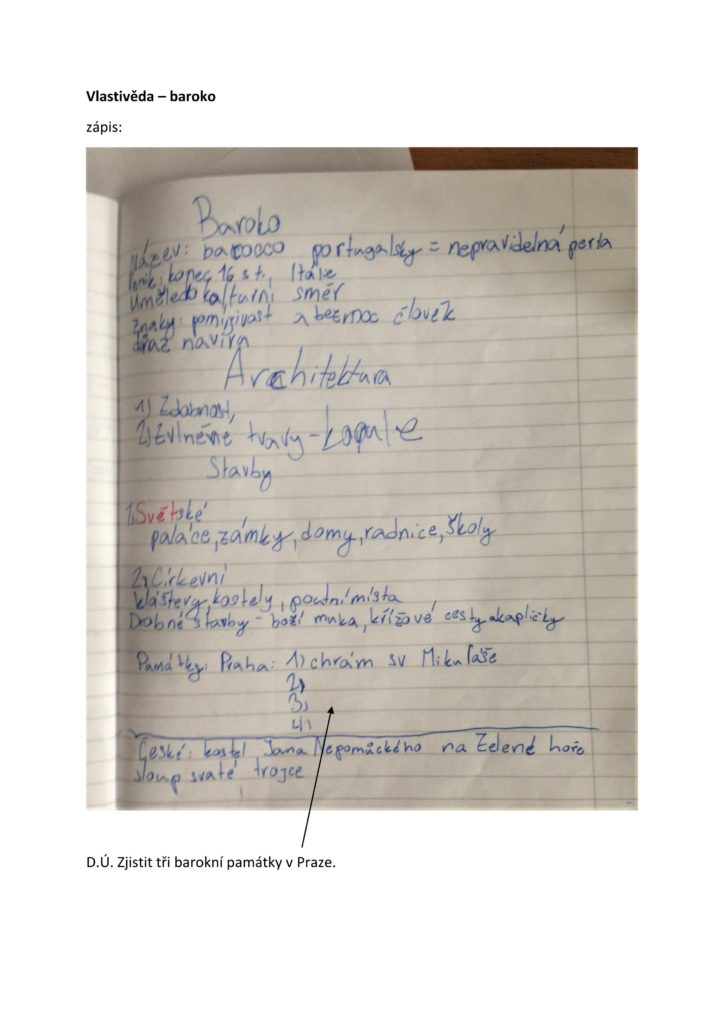 Vlastivěda – baroko
zápis:
Baroko
Název: barocco portugalsky = nepravidelná perla
konec 16 st., Itálie
Umělecko kulturní směr
znaky: pomíjivost a bezmoc člověk
důraz navíra
Architektura
1) Zdobnost,
2) Zvlněné tvary - kopule
Stavby
1, Světské
paláce, zámky, domy, radnice, školy
2, Církevní
kláštery, kostely, poutní místa
Drobné stavby - boží muka, křížové cesty a kapličky
Památky: Praha: 1) chrám sv Mikuláše
2,
3,
4,
České: kostel Jana Nepomůckého na Zelené hoře
sloup svaté trojce
D.Ú. Zjistit tři barokní památky v Praze.